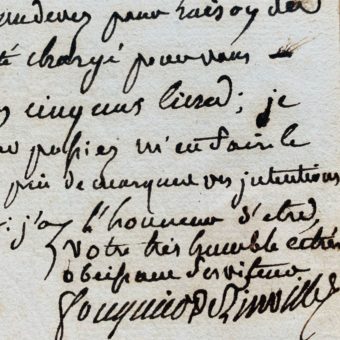 pour raison de
chargé pour vous
cinq cens livres; je
pussiez m'en faire le
prie de marquer vos intentions
j'ay l'honneur d'etre,
votre très humble et très
obeissant serviteur
Fouquier de Tinville